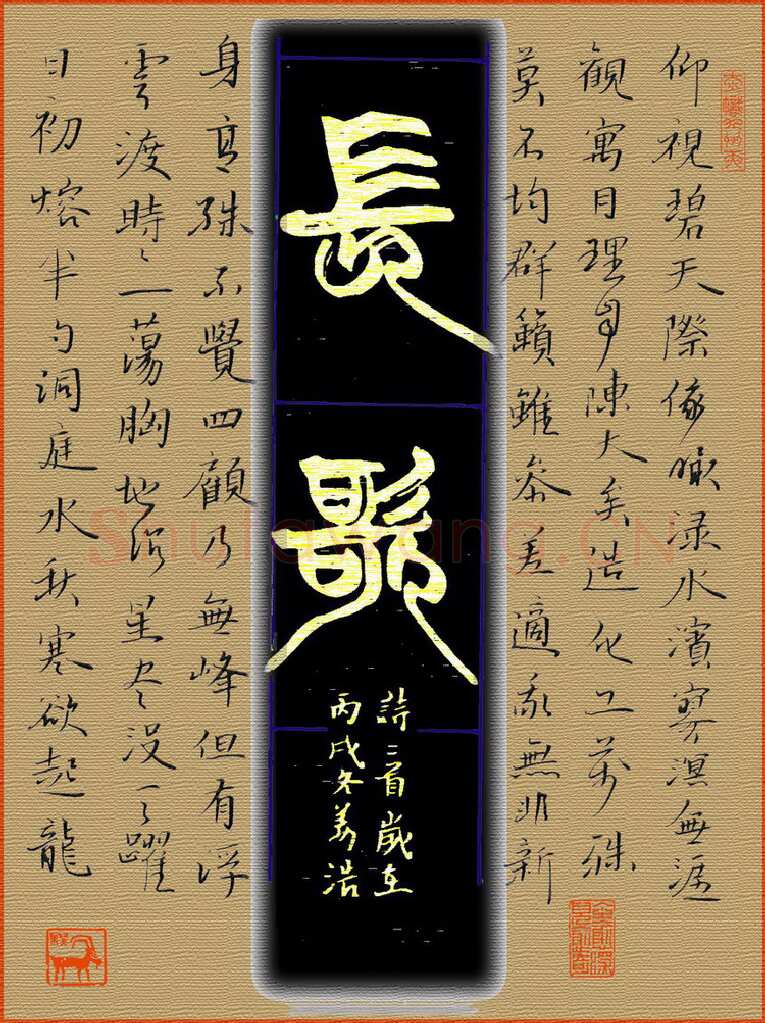 仰視碧天際俯瞰淥水濱寥溟無涯
觀寓目理自陳大矣造化工萬殊
莫不均群籟雖參差適我無非新
長歌
詩二首歲在
丙戌冬浩
身高殊不覺四顧乃無峰但有浮
雲渡時〻一蕩胸地沉星尽沒天躍
日初熔半勺洞庭水秋寒欲起龍
Shufawang.CN